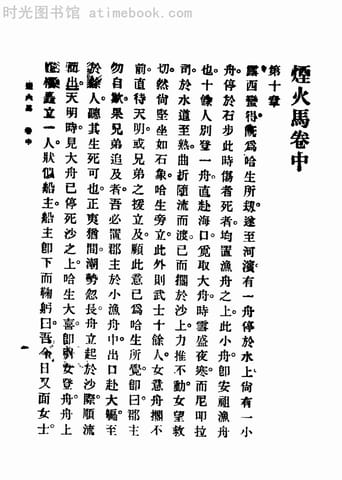 时光图书馆 www.bookinlife.net
煙火馬卷中
第十章
露西螢得衛爲哈生所刼遂至河濱有一舟停於水上尚有一小
舟停於石步此時傷者死者均置漁舟之上此小舟卽安祖漁舟
也十餘人別登一舟直赴海口覓取大舟時雪盛夜寒而尼叩拉
司於水道至熟曲折隨流而渡已而擱於沙上力推不動女望救
切然尙堅坐如石象哈生旁立此外則武士十餘人女意舟擱不
前直待天明或兄弟之援立及顧此意已爲哈生所覺卽曰郡主
勿自歉果兄弟追及者吾必置郡主於小漁舟中出口赴大艇至
於餘人聽其生死可也正夷猶間潮勢忽長舟立起於沙際順流
而出天明時見大舟已停死沙之上哈生大喜卽引女登舟舟上
立一人狀似船主船主卽下而鞠躬曰吾今日又面女士
煙火馬 卷中
一